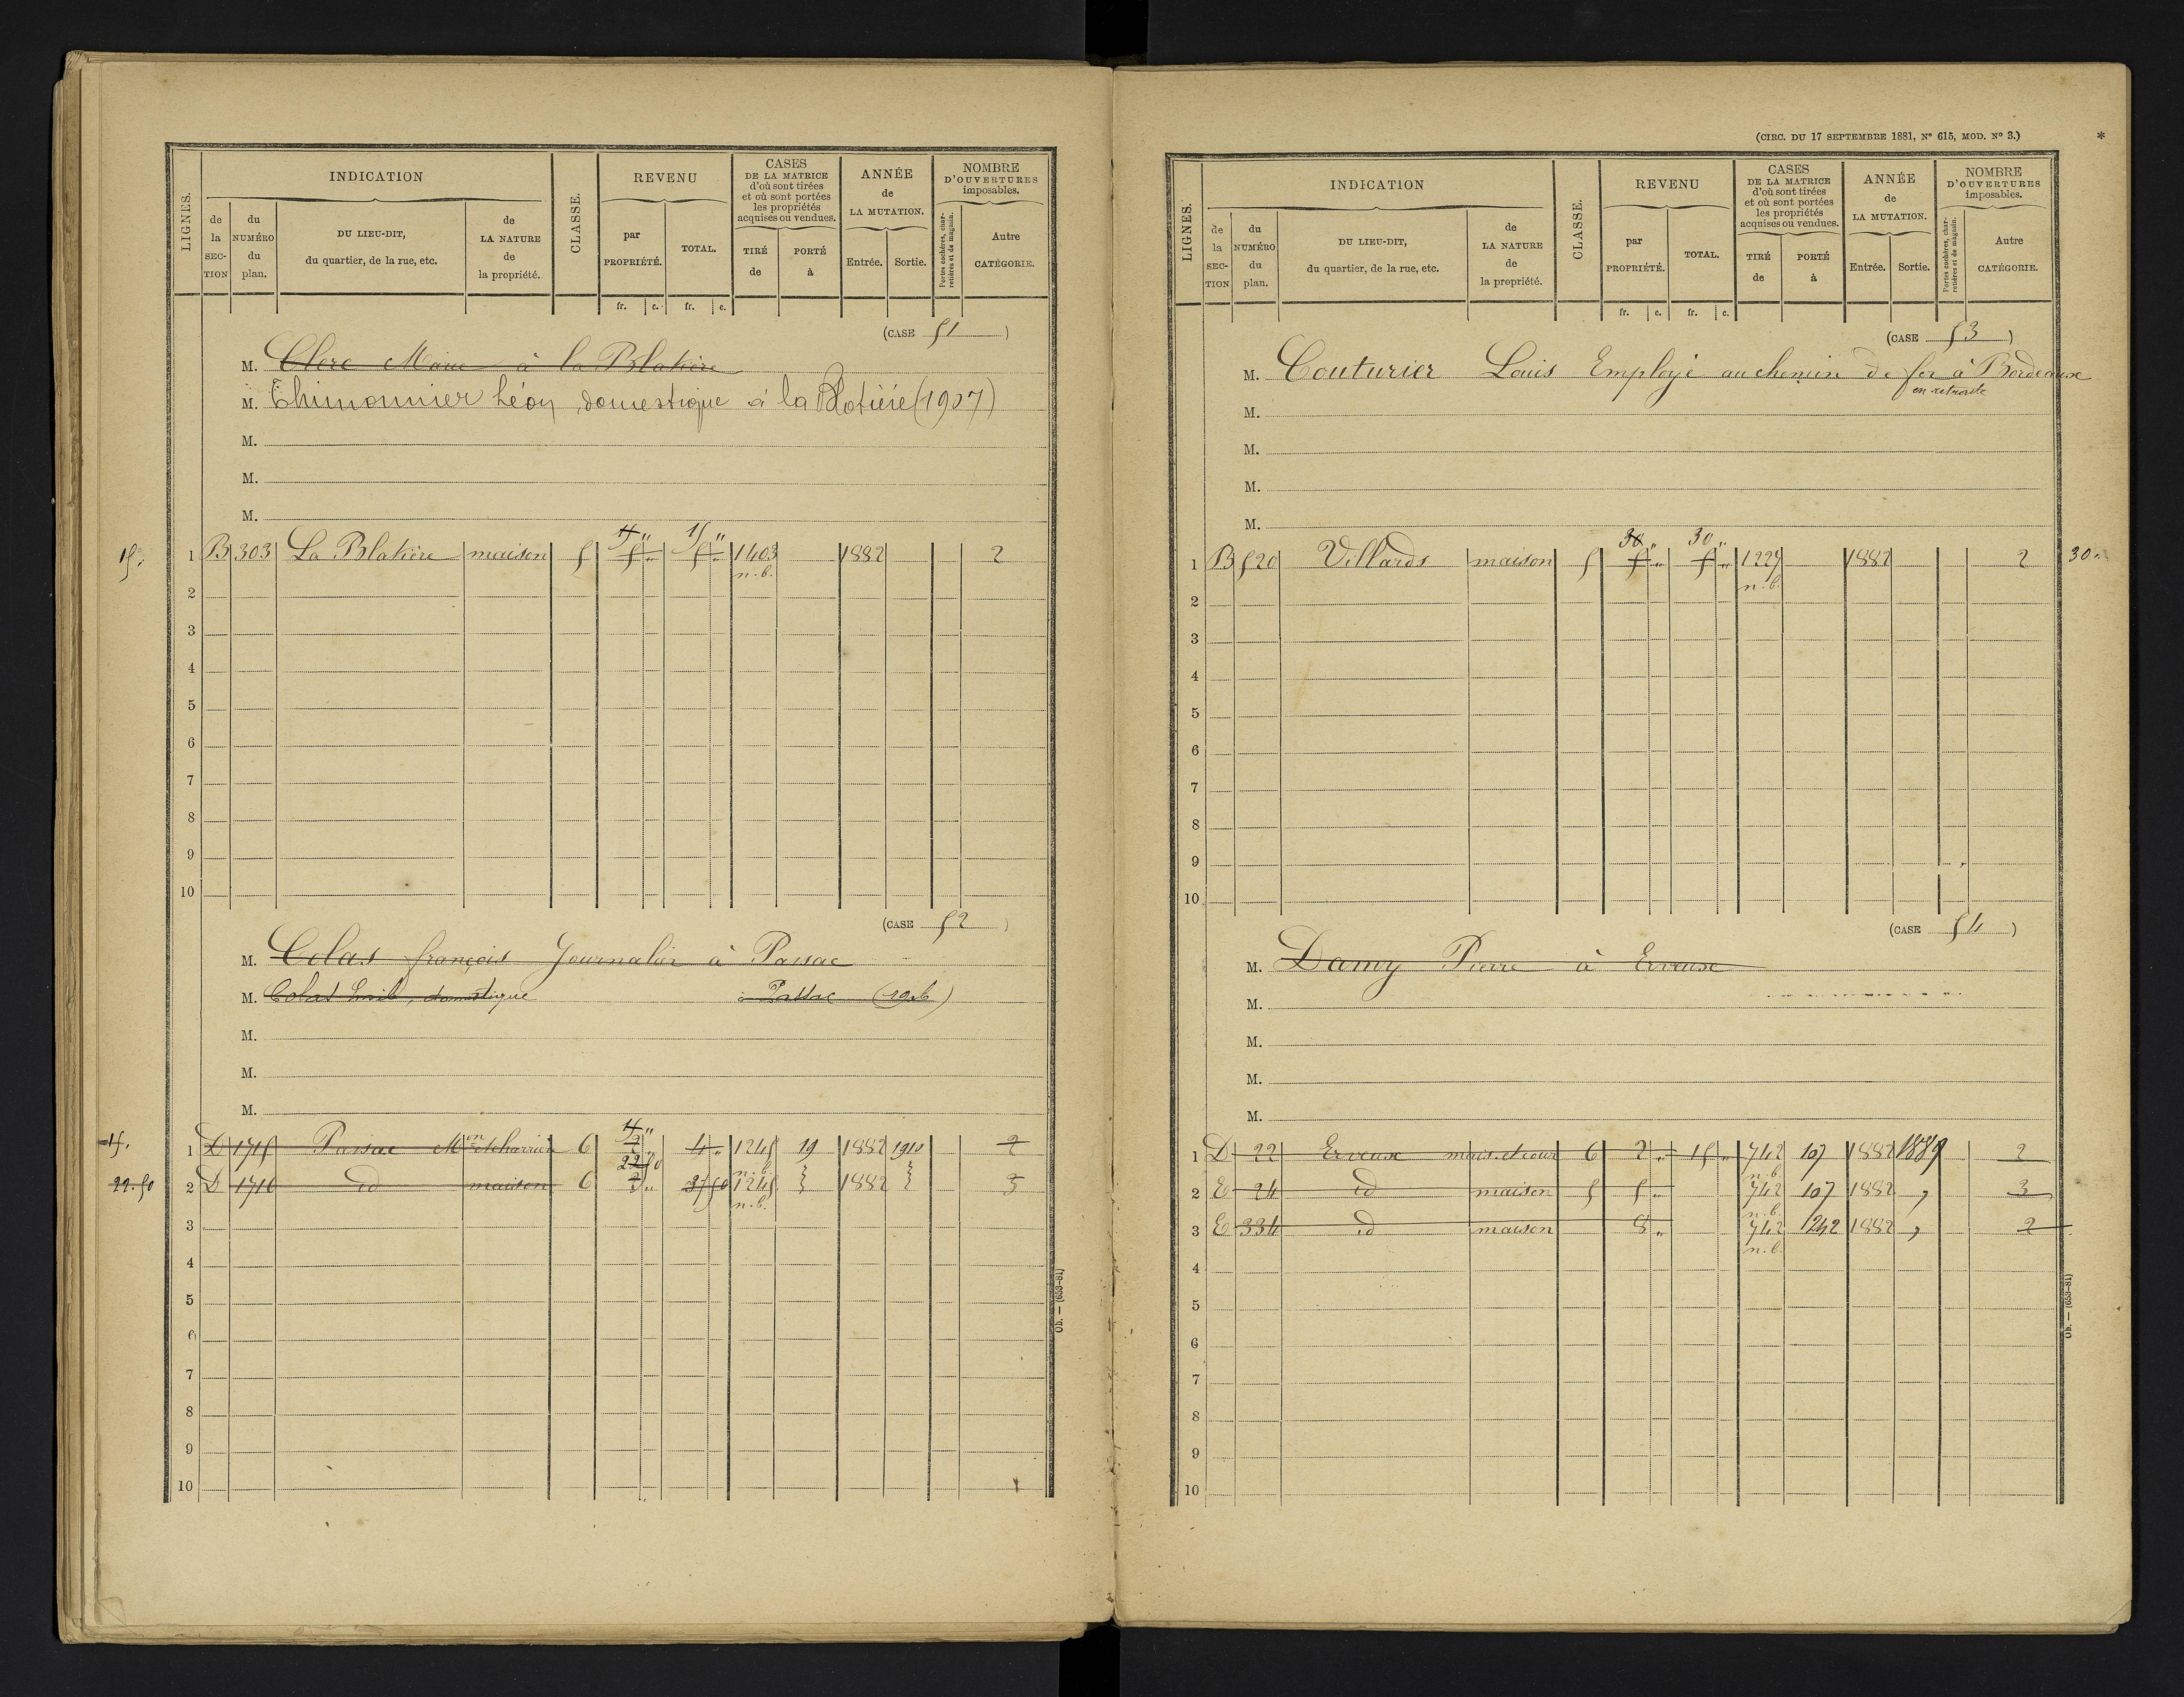 LIGNES.
INDICATION
de la SECTION
du NUMÉRO du plan.
DU LIEU-DIT, du quartier, de la rue, etc.
de LA NATURE de la propriété.
CLASSE.
REVENU
par PROPRIÉTÉ.
TOTAL.
CASES DE LA MATRICE d'où sont tirées et où sont portées les propriétés acquises ou vendues.
TIRÉ de
PORTÉ à
ANNÉE de LA MUTATION.
Entrée.
Sortie.
NOMBRE D'OUVERTURES imposables.
Portes cochères, charretières et de magasin.
Autre CATÉGORIE.
fr. c. fr. c.
(CASE 51)
M. Clerc Marie à la Blatière
M. Thimonnier Léon, domestique à la Blotière (1907)
M.
M.
M.
15 „ 15 „
15. 1 B 303 La Blatière maison 5 5 „ 5 „ 1403 1882 2
n.b.
2
3
4
5
6
7
8
9
10
(CASE 52)
M. Colas françois Journalier à Passac
M. Colas Emile, domestique à Passac (1906)
M.
M.
M.
15 „
15. 1 D 1715 Passac Mon etcharrière 6 2 4 „ 1245 19 1882 1910 2
22 50 n.b.
22.50 2 D 1716 id maison 6 3 „ 37 50 1245 1882 3
n.b.
3
4
5
6
7
8
9
10
Ob. — (653-81)
(CIRC. DU 17 SEPTEMBRE 1881, No 615, MOD. No 3.) *
LIGNES.
INDICATION
de la SECTION
du NUMÉRO du plan.
DU LIEU-DIT, du quartier, de la rue, etc.
de LA NATURE de la propriété.
CLASSE.
REVENU
par PROPRIÉTÉ.
TOTAL.
CASES DE LA MATRICE d'où sont tirées et où sont portées les propriétés acquises ou vendues.
TIRÉ de
PORTÉ à
ANNÉE de LA MUTATION.
Entrée.
Sortie.
NOMBRE D'OUVERTURES imposables.
Portes cochères, charretières et de magasin.
Autre CATÉGORIE.
fr. c. fr. c.
(CASE 53)
M. Couturier Louis Employé au chemin de fer à Bordeaux
en retraite
M.
M.
M.
M.
30 „ 30 „
1 B 520 Villards maison 5 5 „ 5 „ 1227 1882 2 30 „
n.b.
2
3
4
5
6
7
8
9
10
(CASE 54)
M. Damy Pierre à Erveuse
M.
M.
M.
M.
1 D 22 Erveuse mais. et cour 6 2 „ 15 „ 742 107 1882 1889 2
n.b.
2 E 24 id maison 5 5 „ 742 107 1882 „ 3
n.b.
3 E 334 id maison 8 „ 742 1242 1882 „ 2
n.b.
4
5
6
7
8
9
10
Ob. — (653-81)